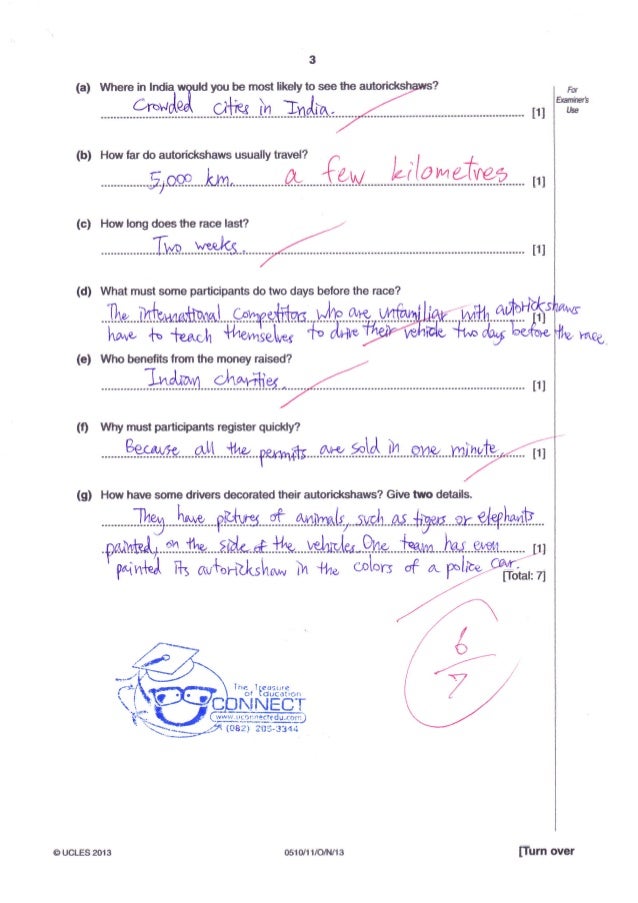 3
(a) Where in India would you be most likely to see the autorickshaws?
For
Examiner's
Use
Crowded cities in India. [1]
(b) How far do autorickshaws usually travel?
5,000 km. a few kilometres [1]
(c) How long does the race last?
Two weeks. [1]
(d) What must some participants do two days before the race?
The international competitors who are unfamiliar with autorickshaws [1]
have to teach themselves to drive their vehicle two days before the race
(e) Who benefits from the money raised?
Indian charities. [1]
(f) Why must participants register quickly?
Because all the permits are sold in one minute. [1]
(g) How have some drivers decorated their autorickshaws? Give two details.
They have pictures of animals, such as tigers or elephants
painted, on the side of the vehicles. One team has even [1]
painted its autorickshaw in the colors of a police car.
[Total: 7]
6
7
The Treasure
of Education
UCONNECT
www.uconnectedu.com
(082) 205-3344
© UCLES 2013
0510/11/O/N/13
[Turn over